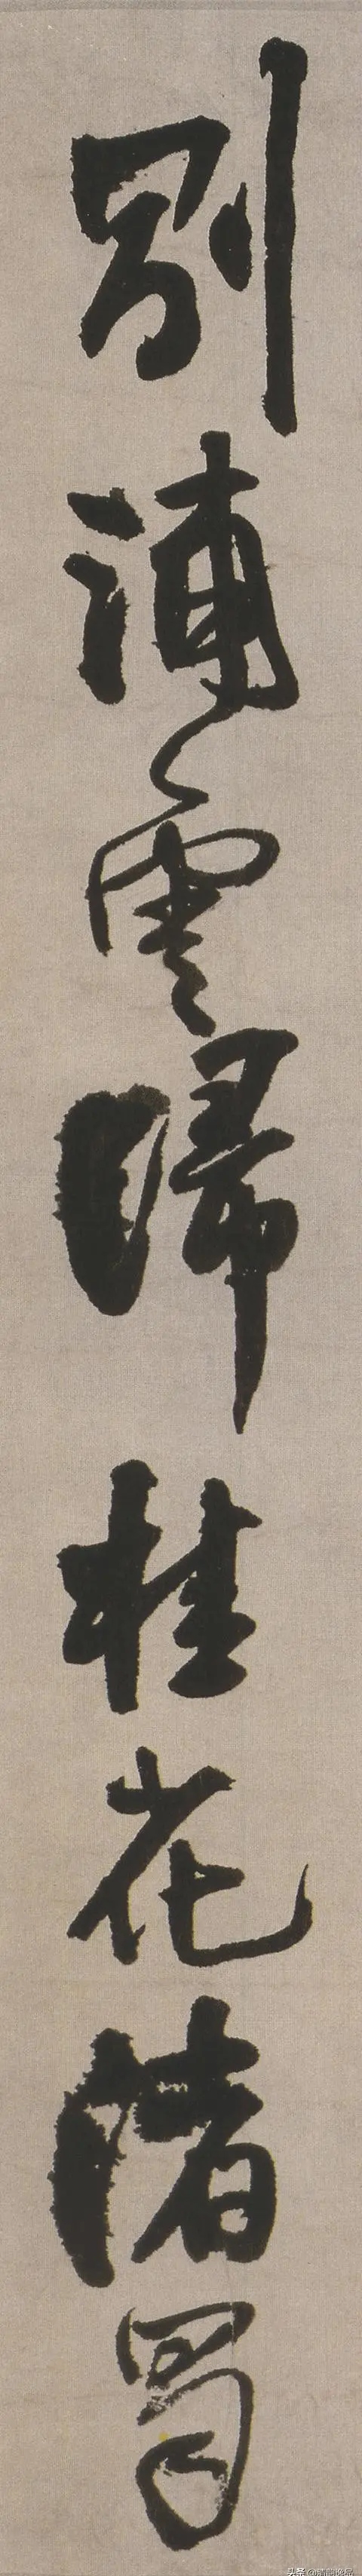 別浦雲歸桂花渚蜀
头条